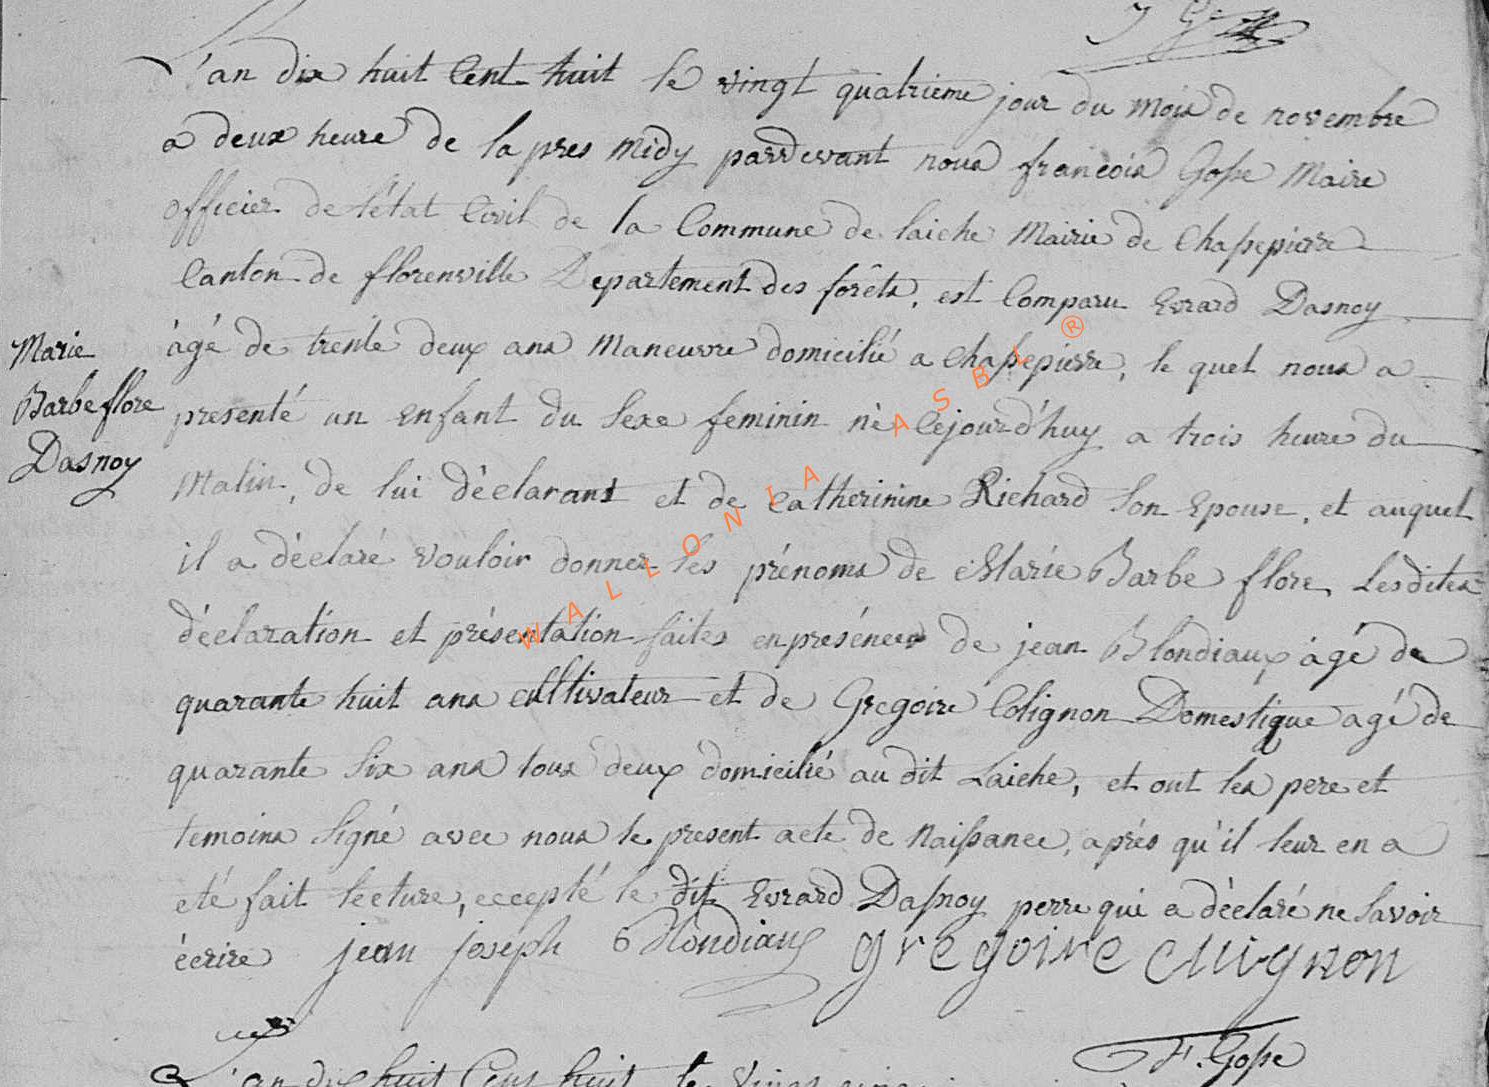 L'an dix huit Cent huit le vingt quatrieme jour du mois de novembre
a deux heure de lapres midy pardevant nous francois Gosse Maire
officier de l'état Civil de la Commune de laiche Mairie de Chassepierre
Canton de florenville Departement des forêts, est Comparu Evrard Dasnoy
Marie
Barbe flore
Dasnoy
àgé de trente deux ans Maneuvre domicilié a Chassepierre, le quel nous a
presenté un Enfant du Sexe feminin nè Cejourd'huy a trois heure du
Matin, de lui dèclarant et de Catherinine Richard Son Epouse, et auquel
il a déclaré vouloir donner les prénoms de Marie Barbe flore, Lesdites
déclaration et présentation faites en présénce de jean Blondiaux àgé de
quarante huit ans cultivateur et de Gregoire Colignon Domestique agé de
quarante Six ans tous deux domicilié au dit Laiche, et ont les pere et
temoins Signé avec nous le present acte de Naissance, après qu'il leur en a
eté fait lecture, ecceptè le dit Evrard Dassnoy perre qui a dèclaré ne Savoir
écrire jean joseph Blondiaux gregoire collignon
F. Gosse
L'an dix huit Cent huit le Vingt
WALLONIA ASBL ®